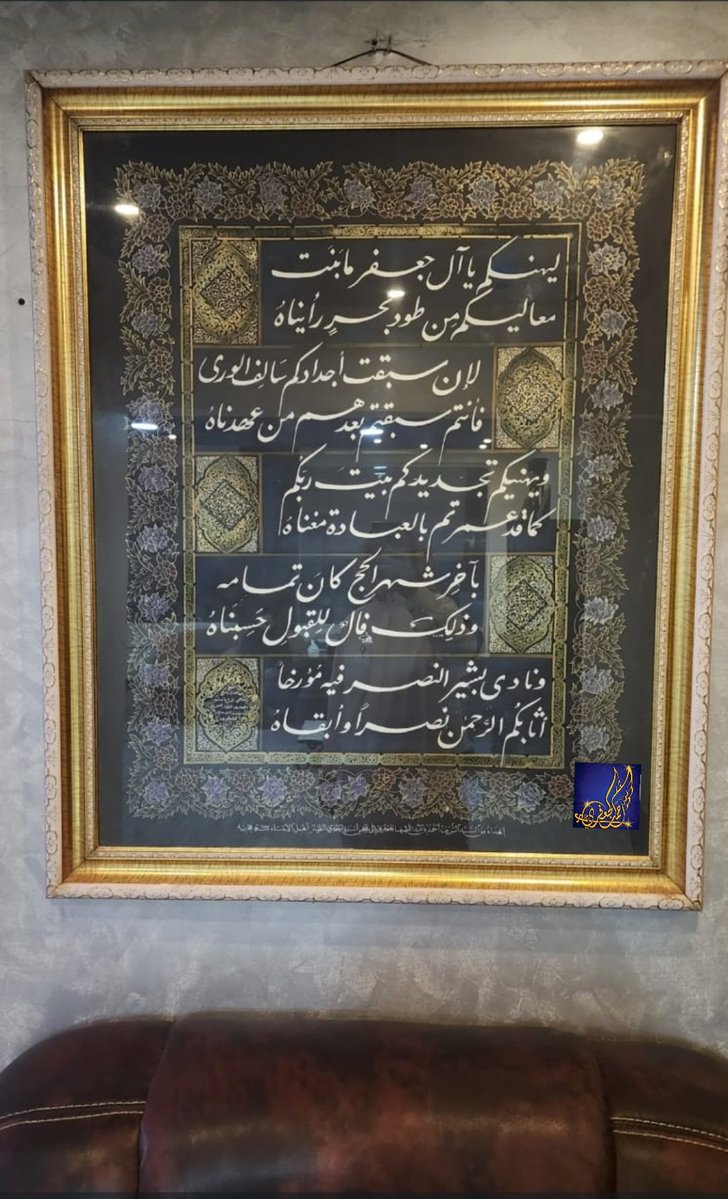 ليهنكم يا آل جعفر ما بَنَت
معاليكم مِن طود فخرٍ رأيناهُ
لإن سبقت أجدادكم سَالِف الورى
فأنتم سبقتم بعدهم من عهدناهُ
ويهنيكم تجديدكم بَيتَ ربّكُم
كما قد عمرتم بالعبادة مغناهُ
بآخِرِ شهر الحج كانَ تمامه
وذلِك فال لِلقبول حَسِبنَاهُ
ونادى بشير النصر فيه مُؤرخاً
أثابكُم الرَّحمٰن نصراً وأبقاهُ